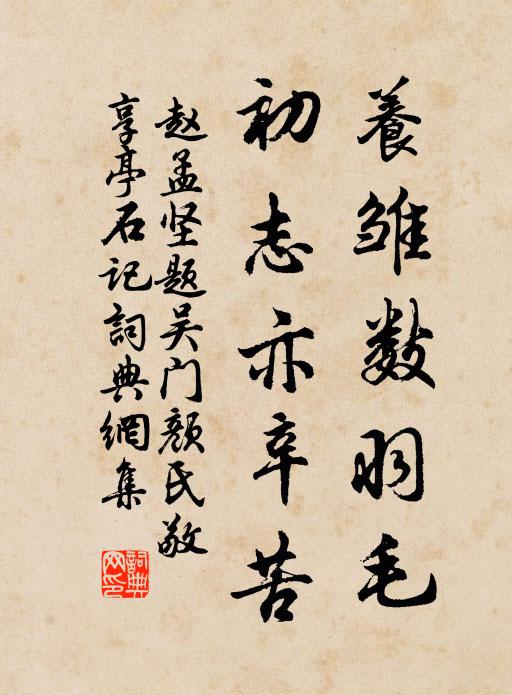 養雏数羽毛
初志亦辛苦
赵孟坚题吴门颜氏敬
享亭石记詞典網集
詞典
网印